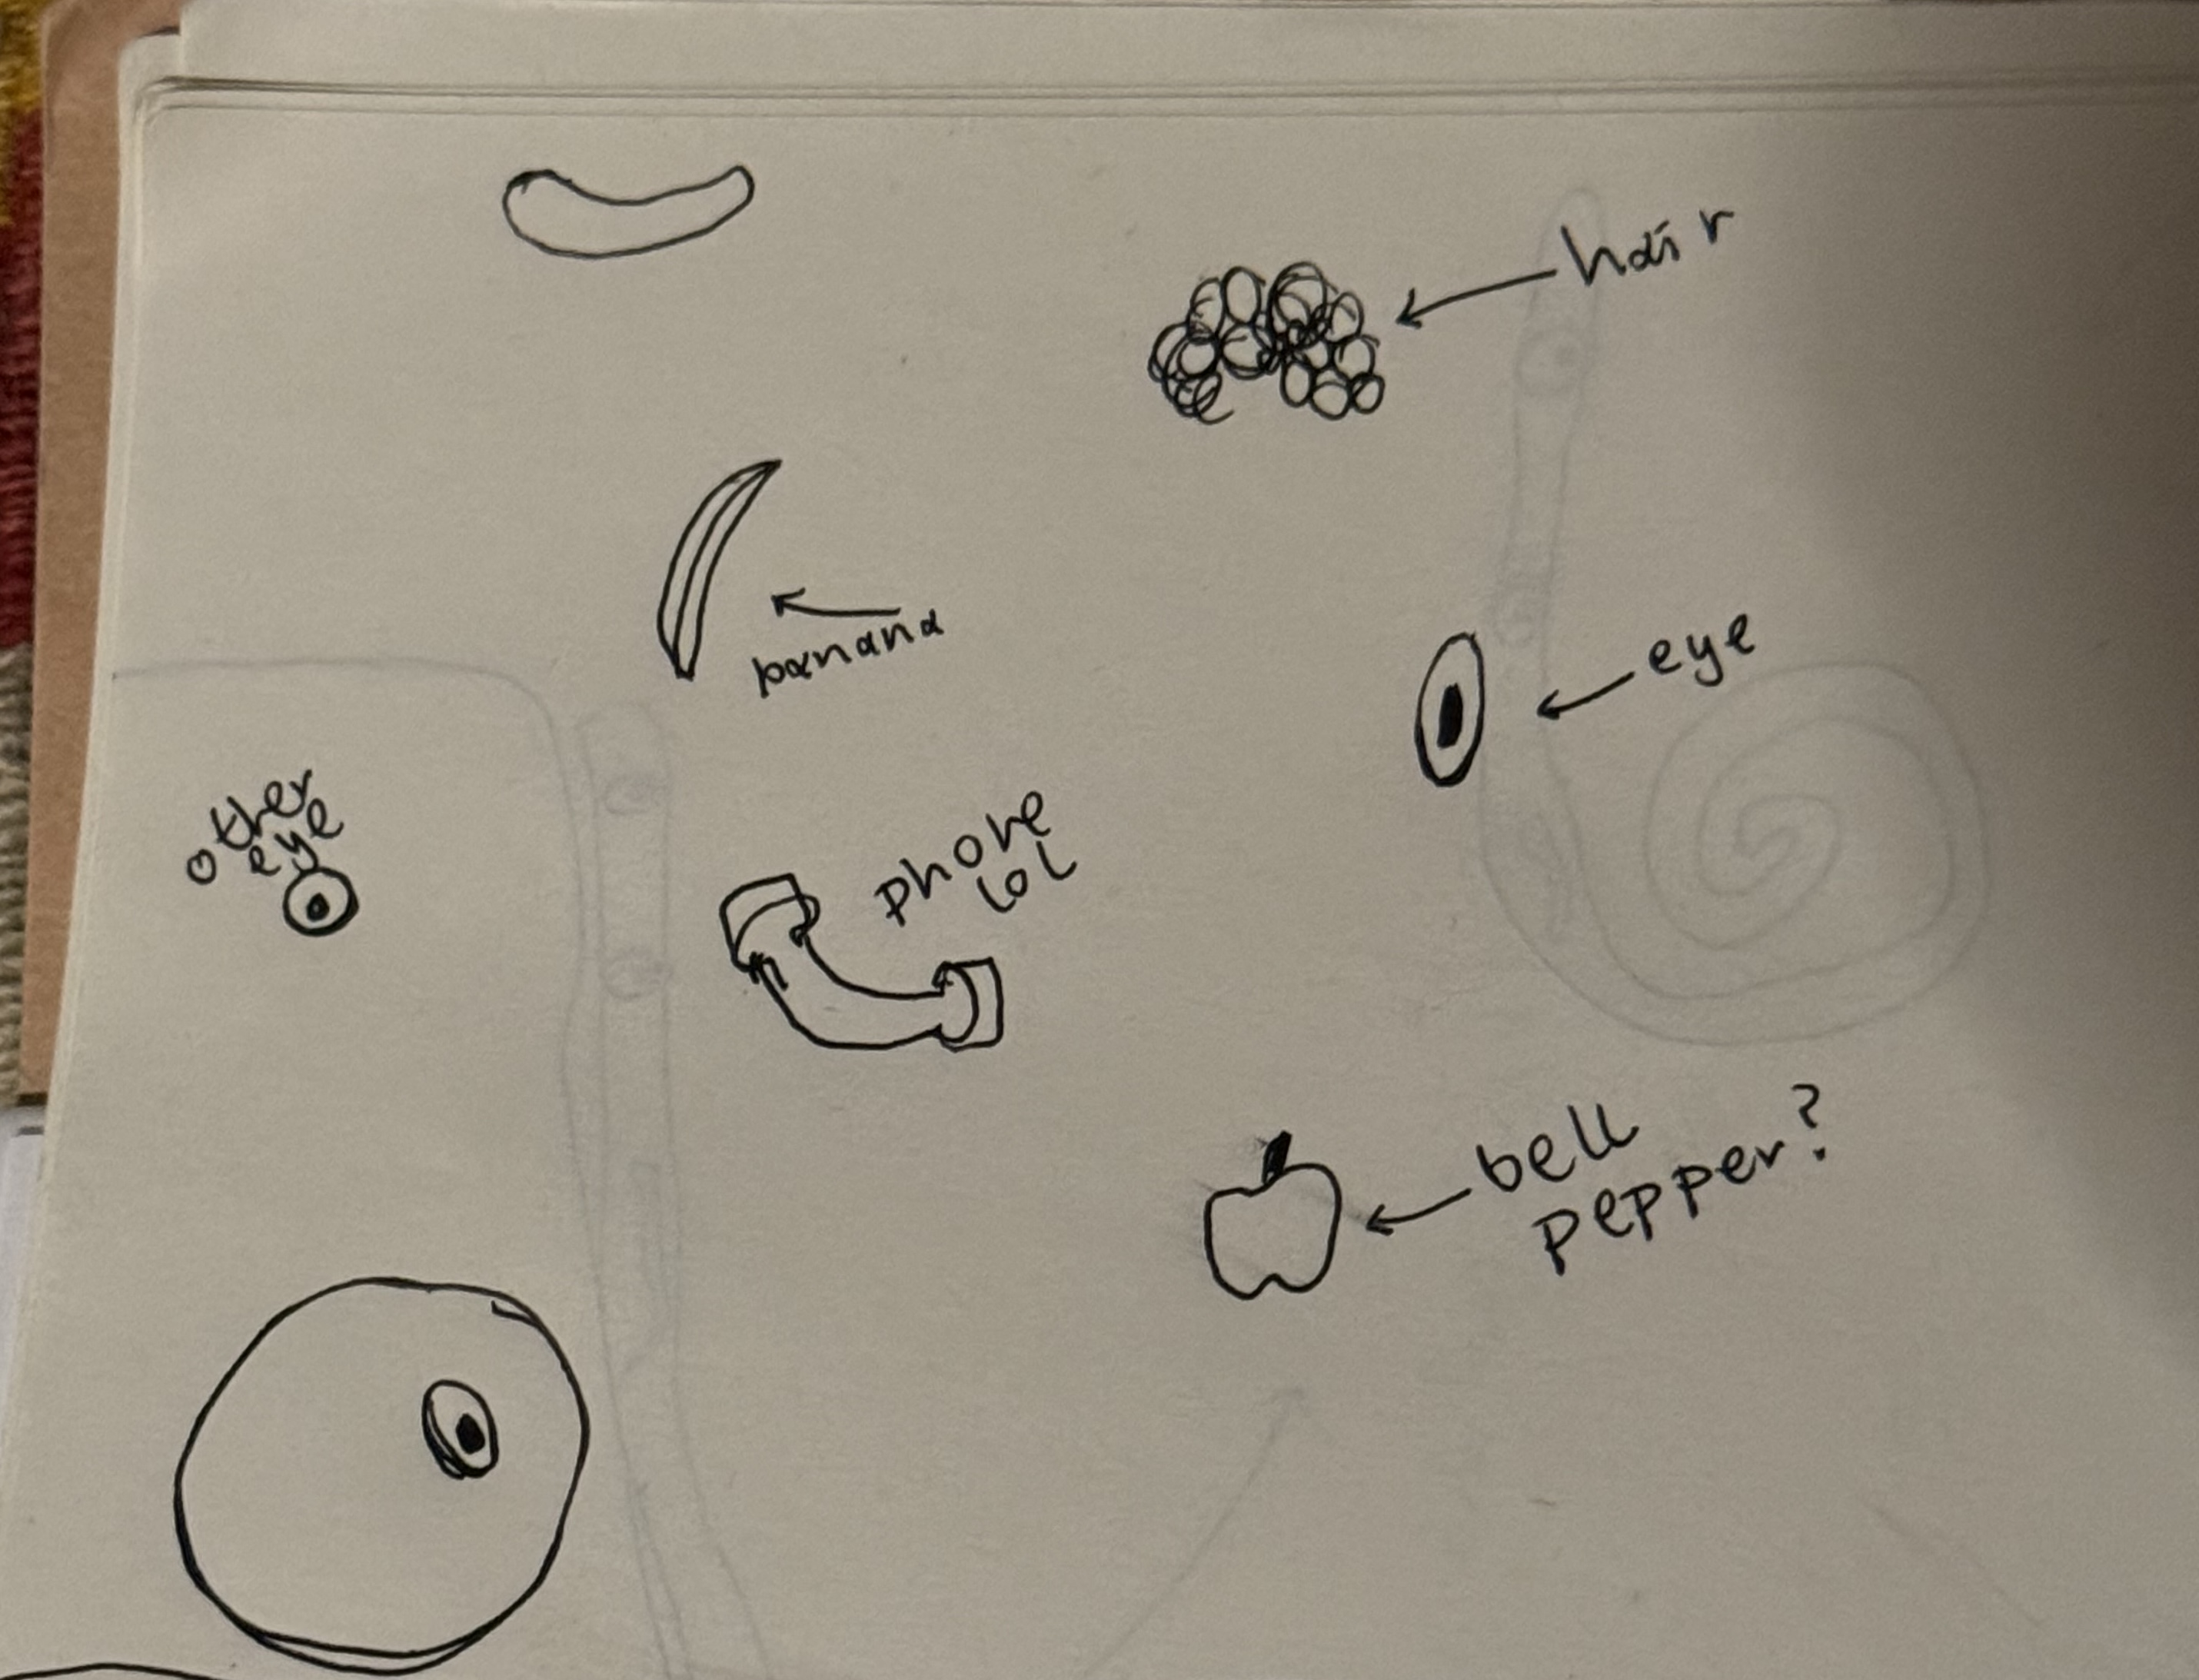 hair
banana
eye
other
eye
phone
lol
bell
pepper?